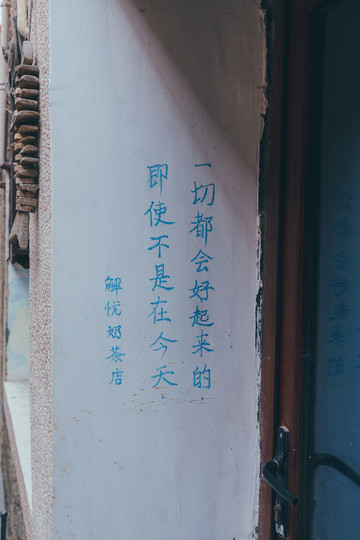 一切都会好起来的.
即使不是在今天.
解忧奶茶店